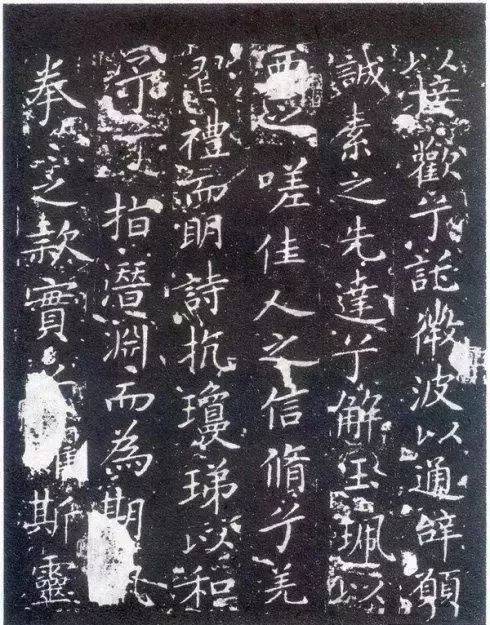 以接歡兮託微波以通辭願
誠素之先達兮解玉珮以
要之嗟佳人之信脩兮羌
習禮而眀詩抗瓊珶以和
予兮指潛淵而為期
拳〻之款實兮懼斯靈